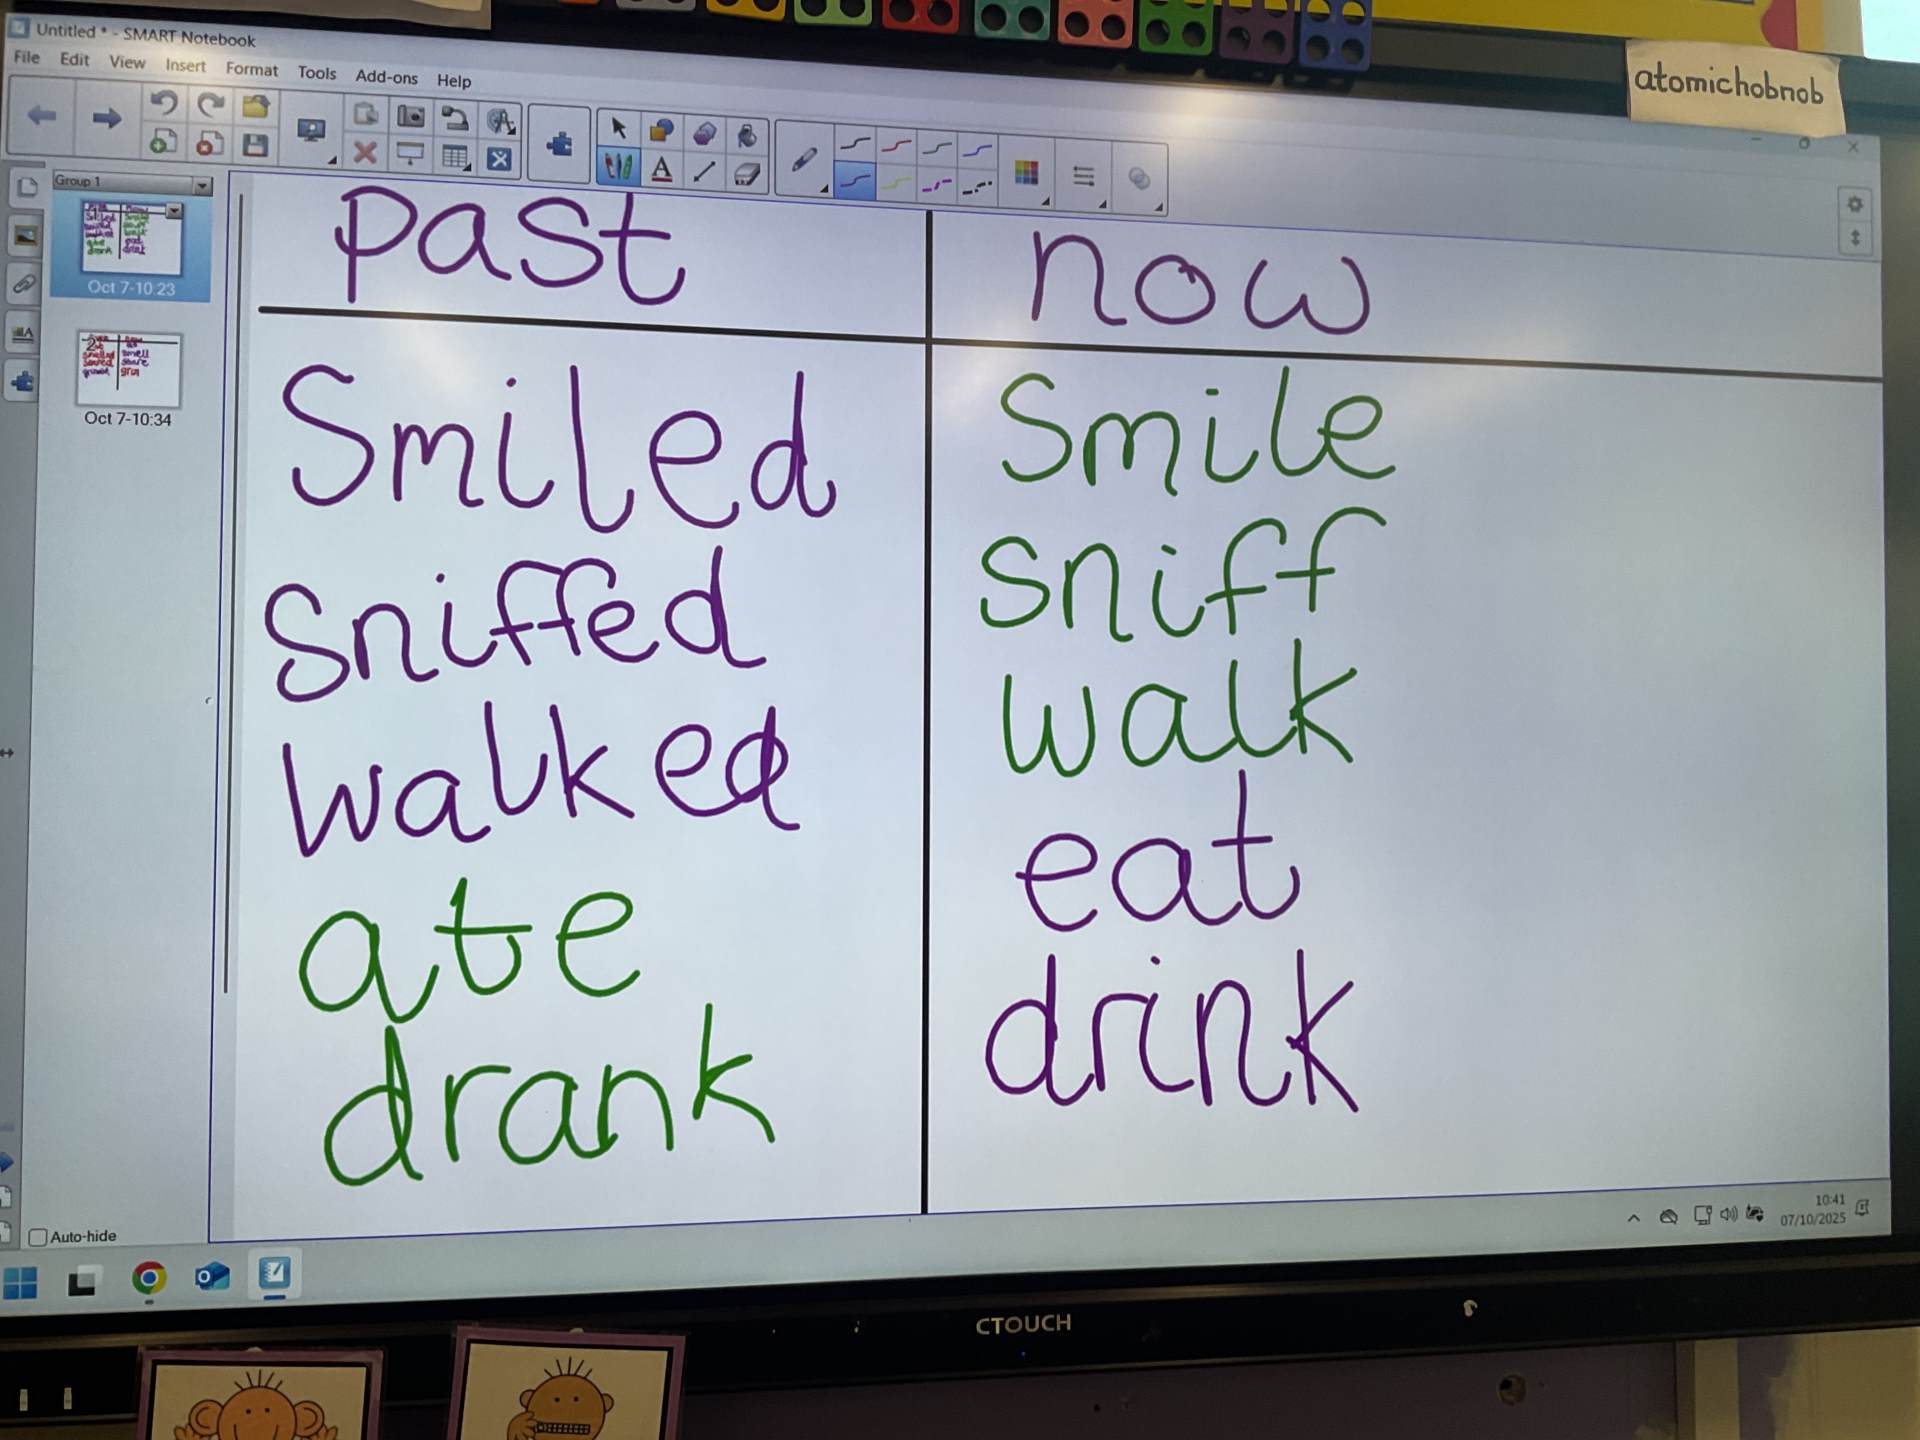 Untitled * - SMART Notebook
File Edit View Insert Format Tools Add-ons Help
atomichobnob
Group 1
Oct 7-10:23
Oct 7-10:34
past now
Smiled Smile
Sniffed sniff
walked walk
ate eat
drank drink
Auto-hide
10:41
07/10/2025
CTOUCH